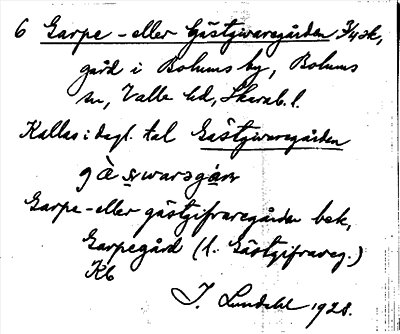 6 Garpe- eller Gästgivaregården 3/4 sk,
gård i Bolums by, Bolums
sn, Valle hd, Skarab. l.
Kallas i dagl. tal Gästgivaregården
Garpe- eller gästgifvaregården bek,
Garpegård (l. Gästgifvareg.)
Kb
J. Lundahl 1928.